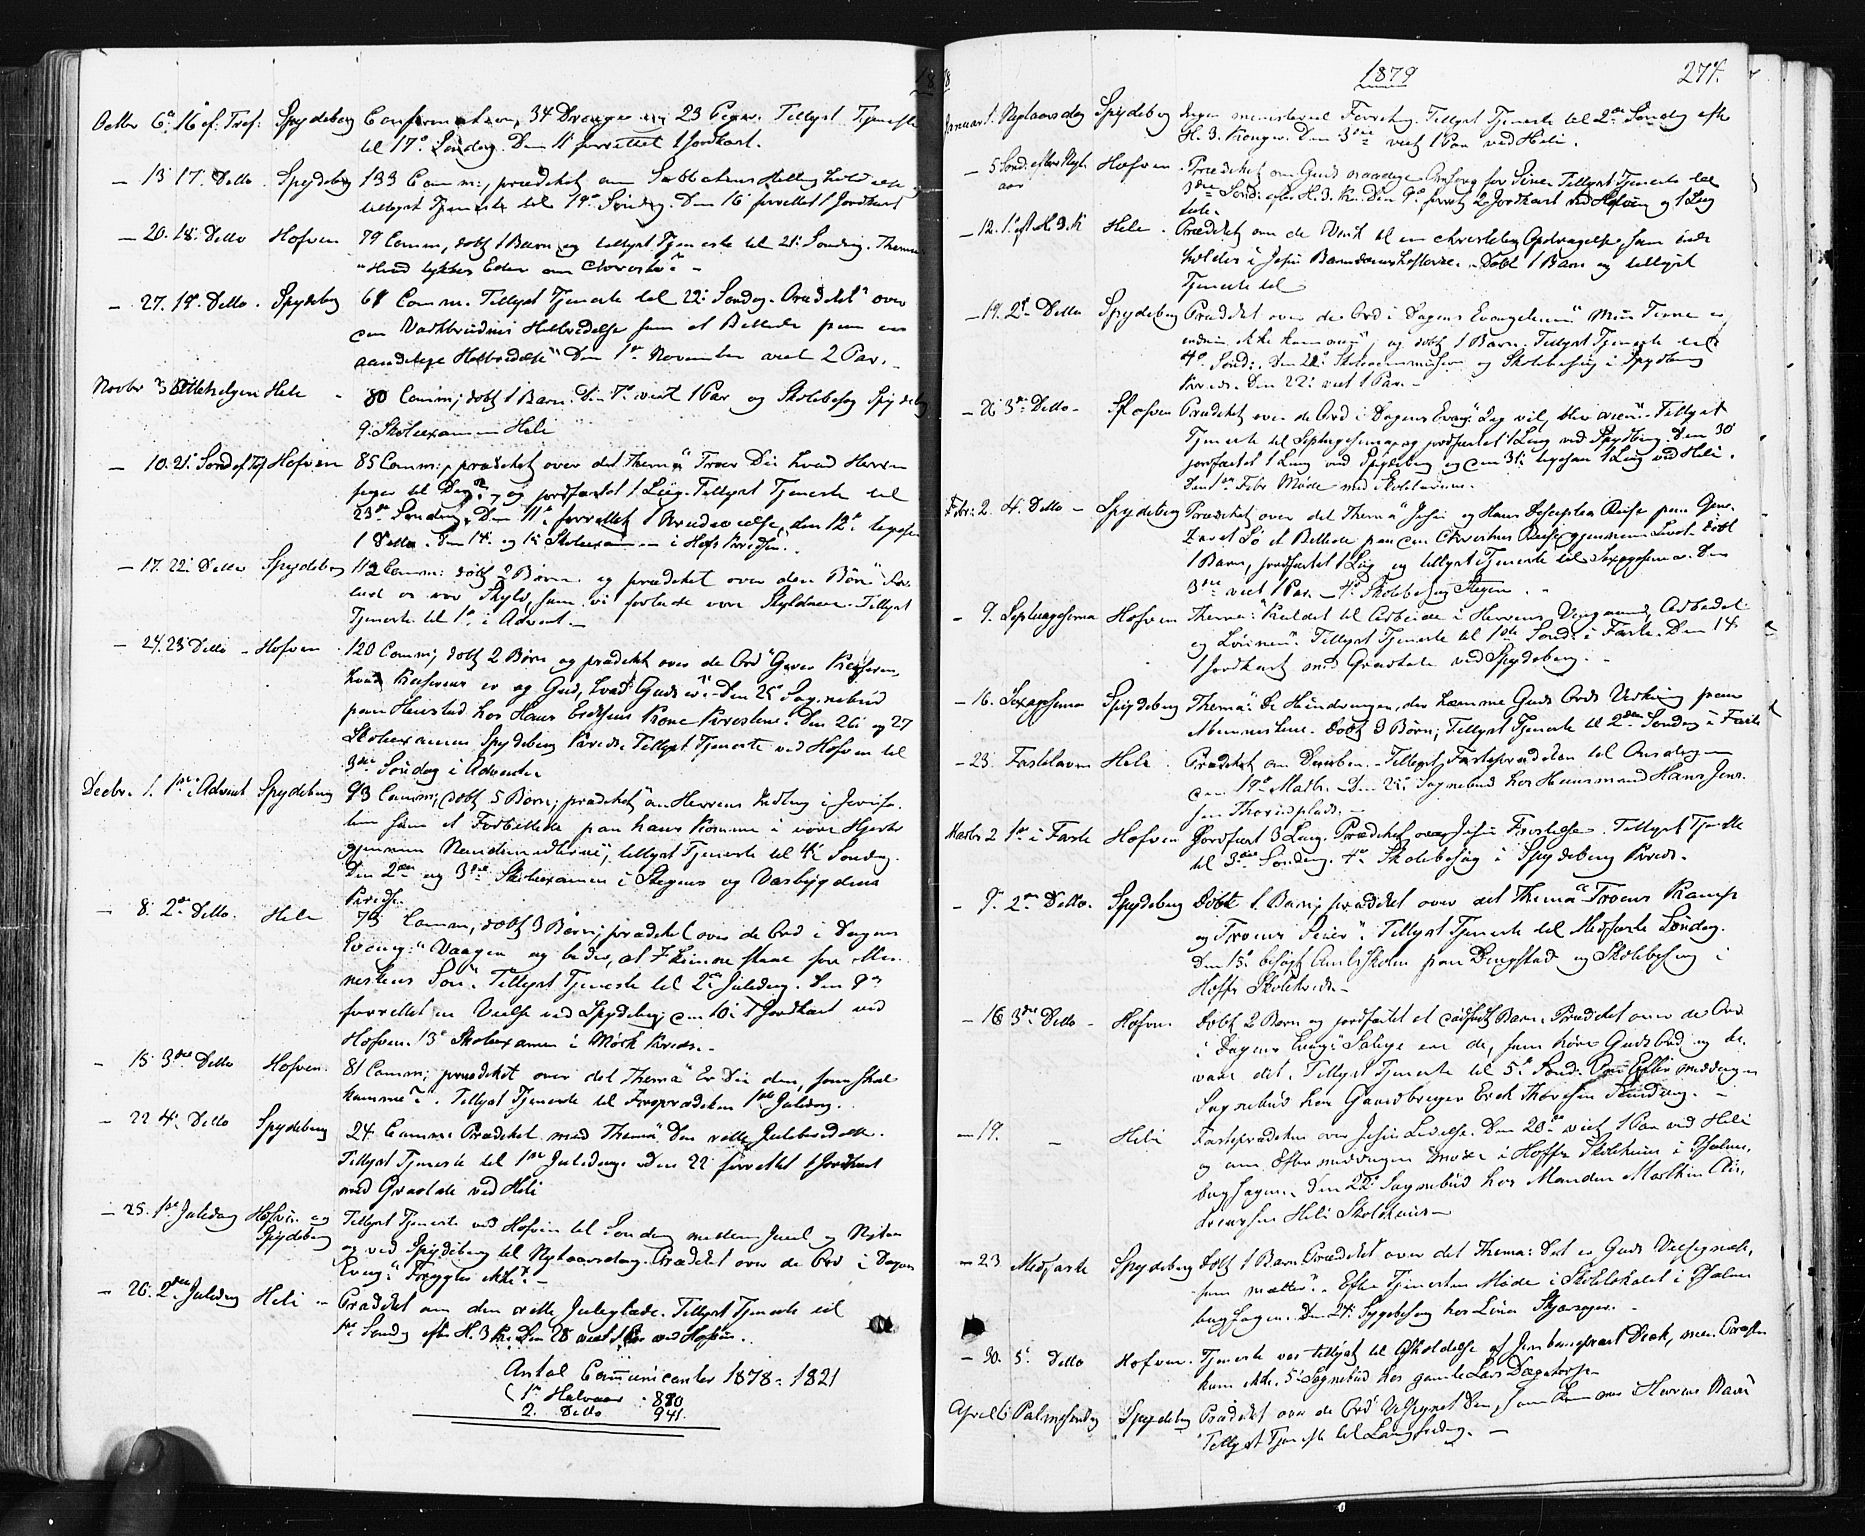 18
Octbr 6te 16 ef. Tref: Spydeberg Confirmation, 34 Drenge og 23 Piger. Tillyst Tjeneste
til 17de Søndag. Den 11te forrettet 1 Jordkast.
— 13 17. Detto Spydeberg 133 Comm:, prædiket om Sabbathens Helligholdelse og
tillyst Tjeneste til 19de Søndag. Den 16 forrettet 1 Jordkast
— 20. 18. Detto Hofvin 79 Comm, døbt 1 Barn og tillyst Tjeneste til 21de Søndag. Thema
"Hvad tykkes Eder om Christo"? —
— 27. 19. Detto. Spydeberg 61 Comm. Tillyst Tjeneste til 22de Søndag. Prædiket over
"en Helbredelse som et Billede paa en
aandelige Helbredelse" Den 1ste November viet 2 Par. —
Novbr 3 Allehelgen Heli 80 Comm; døbt 1 Barn. Den 7de viet 1 Par og Skolebesøg Spydeberg
9. Skoleexamen Heli
— 10. 21. Sond ef Tref Hofvin 85 Comm; prædiket over det Thema "Troer Du hvad Herren
siger til Dig?" og jordfæstet 1 Liig. Tillyst Tjeneste til
23de Søndag. Den 11te forrettet 1 Brudevielse, den 12te ligesaa
1 Detto. Den 14. og 15 Skoleexamen i Hofs Kreds.
— 17. 22. Detto Spydeberg 112 Comm: døbt 2 Børn og prædiket over den Bøn "For-
lad os vor Skyld, som vi forlade vore Skyldnere. Tillyst
Tjeneste til 1ste i Advent. —
— 24. 23 Detto — Hofvin 120 Comm; døbt 2 Børn og prædiket over de Ord "Giver Keiseren,
hvad Keiserens er og Gud, hvad Guds er". Den 25de Sognebud
paa Huustad hos Hans Kone Kirstine. Den 26 og 27
Skoleexamen Spydeberg Kreds. Tillyst Tjeneste ved Hofvin til
3die Søndag i Advent
Decbr. 1. 1ste i Advent Spydeberg 93 Comm; døbt 5 Børn; prædiket "om Herrens Indtog i Jerusa-
lem som et Forbillede paa hans Komme i vore Hjerter
gjennem Naademidlerne", tillyst Tjeneste til 4de Søndag.
Den 2den og 3die Skoleexamen i Stegens og Vasbygdens
Kredse.
— 8. 2den Detto. Heli 73 Comm, døbt 3 Børn; prædiket over de Ord i Dagens
Evang: "Vaagen og beder, at I kunne staae for Men-
neskens Søn". Tillyst Tjeneste til 2den Juledag. Den 9de
forrettet en Vielse ved Spydeberg; den 10de 1 Jordkast ved
Hofvin. 13de Skoleexamen i Mørk Kreds. —
— 15 3die Detto Hofvin. 81 Comm; prædiket over det Thema "Er Du den, som skal
komme?". Tillyst Tjeneste til Froprædiken 1ste Juledag.
— 22 4de Detto Spydeberg 24 Comm: Prædiket med Thema "Den rette Juleberedelse.
Tillyst Tjeneste til 1ste Juledag. Den 22 forrettet 1 Jordkast
med Gravtale ved Heli
— 25. 1ste Juledag Hofvin og
Spydeberg Tillyst Tjeneste ved Hofvin til Søndag mellem Juul og Nytaar
og ved Spydeberg til Nytaarsdag. Prædiket over de Ord i Dagens
Evang: "Frygter ikke". —
— 26. 2den Juledag Heli — Prædiket om den rette Juleglæde. Tillyst Tjeneste til
1ste Søndag efter H. 3 K. Den 28 viet 1 Par ved Hofvin.
Antal Communicanter 1878 = 1821
(1ste Halvaar - 880
2. Detto 941.
78
1879
274.
Januar 1. Nytaarsdag Spydeberg Ingen ministeriel Forretning. Tillyst Tjeneste til 2den Søndag efter
H. 3. Konger. Den 3die viet 1 Par ved Heli.
— 5 Sond. efter Nyt-
aar Hofvin Prædiket om Guds naadige Omsorg for Sine. Tillyst Tjeneste til
3die Sond: efter H. 3. K. Den 9de forrettet 2 Jordkast ved Hofvin og 1 Liig
— 12. 1ste eft H. 3. K Heli. Prædiket om de Vink til en christelig Opdragelse, som inde-
holdes i Jesu Barndoms historie. Døbt 1 Barn og tillyst
Tjeneste til
— 19. 2den Detto Spydeberg Prædiket over de Ord i Dagens Evangelium "Min Time er
endnu ikke kommen", og døbt 1 Barn; Tillyst Tjeneste til
4de Sond: Den 21de og Skolebesøg i Spydeberg
Kreds. Den 22de viet 1 Par. —
— 26 3die Detto — Hofvin Prædiket over de Ord i Dagens Evang: "Jeg vil, bliv reen". Tillyst
Tjeneste til Septuagesima og jordfæstet 1 Liig ved Spydeberg. Den 30
jordfæstet 1 Liig ved Spydeberg og den 31te ligesaa 1 Liig ved Heli.
Den 1ste Febr Møde med
Febr: 2. 4. Detto — Spydeberg Prædiket over det Thema "Jesu og Hans Disciples Reise paa Gene-
zaret Sø et Billede paa en Christens Reise gjennem Livet. Døbt
1 Barn, jordfæstet 1 Liig og tillyst Tjeneste til Sexagesima. Den
3die viet 1 Par. — 4de Skolebesøg Stegen.
— 9. Septuagesima Hofvin Thema: "Kaldet til Arbeide i Herrens Viingaard, Arbeidet
og Lønnen". Tillyst Tjeneste til 1ste Sond: i Faste. Den 14.
1 Jordkast med Gravtale ved Spydeberg. —
— 16. Sexagesima Spydeberg Thema: De Hindringer, der hæmme Guds Ords Virkning paa
Menneskene. Døbt 3 Børn; Tillyst Tjeneste til 2den Søndag i Faste
— 23. Fastelavn Heli. Prædiket om Daaben. — Tillyst Fasteprædiken til Onsdag
den 19de Marts. — Den 25de Sognebud hos Huusmand Hans Jen-
sen Thorudplads. —
Marts 2 1ste i Faste Hofvin Jordfæst 3 Liig. Prædiket over Jesu Fristelse. Tillyst Tjeneste
til 3die Søndag. 4de Skolebesøg i Spydeberg Kreds. —
— 9. 2den Detto. Spydeberg Døbt 1 Barn; prædiket over det Thema "Troens Kamp
og Troens Seier". Tillyst Tjeneste til Midfaste Søndag.
Den 13de besøgt Amtsskolen paa Dingstad og Skolebesøg i
Hoffs Skolekreds. —
— 16 3die Detto — Hofvin Døbt 2 Børn og jordfæstet et Barn. Prædiket over de Ord
i Dagens Evang: Salige ere de, som høre Guds Ord og be-
vare det. Tillyst Tjeneste til 5te Sond: Om Eftermiddagen
Sognebud hos Gaardbruger Erik Thoresen
— 19. — Heli Fasteprædiken over Jesu Lidelse. Den 20de viet 1 Par ved Heli
og om Eftermiddagen Møde i Hoffs Skolehuus i Psalme-
bogsagen. Den 22de Sognebud hos Manden Mathias
Heli Skolehuus —
— 23 Midfaste Spydeberg Døbt 1 Barn. Prædiket over det Thema: Det er Guds Velsignelse,
som mætter". Efter Tjenesten Møde i Skolelokalet i Psalme-
bogsagen. Den 24de Sygebesøg hos Lina —
— 30. 5te Detto Hofvin. Tjeneste var tillyst til Afholdelse af Vicar, men Præsten
kom ikke. 5te Sognebud hos gamle Lars
April 6 Palmesøndag Spydeberg Prædiket over de Ord "Velsignet Den, som kommer i Herrens Navn"
Tillyst Tjeneste til Langfredag. —